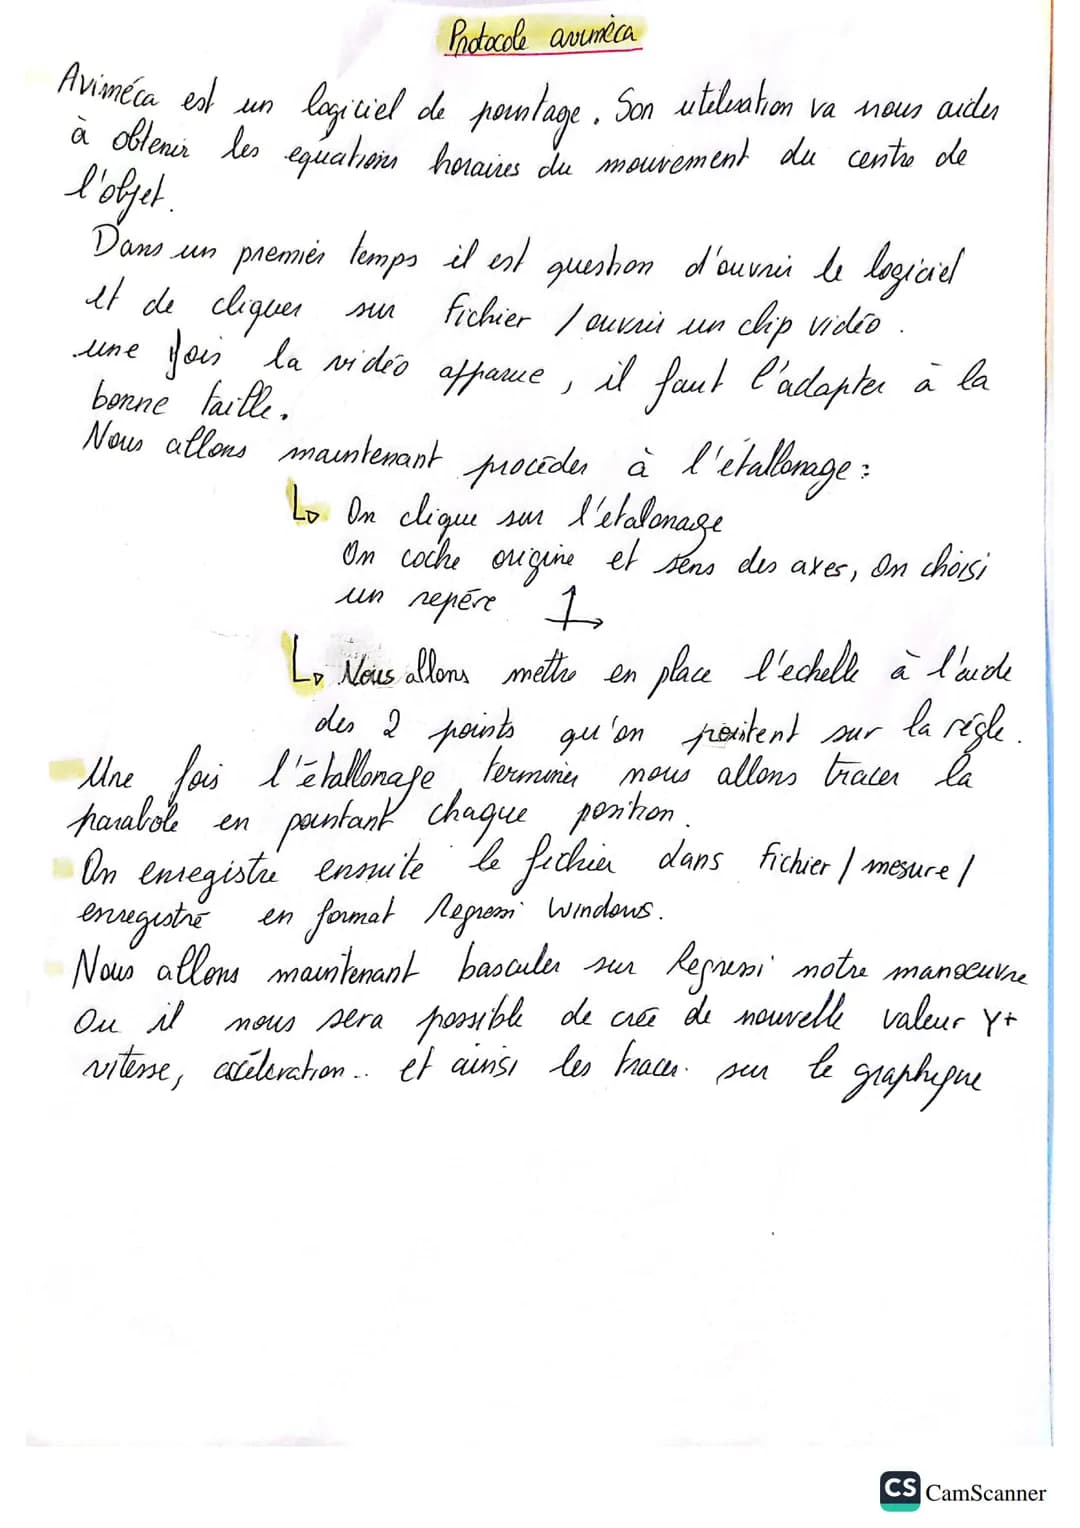 Protocole aviméca
Aviméca est un logiciel de pointage. Son utilisation va nous aider
à obtenir les equations horaires du mouvement du centre de
l'objet.
Dans un premier temps il est question d'ouvrir le logiciel
et de cliquer sur fichier / ouvrir un clip vidéo.
une fois la vidéo apparue, il faut l'adapter à la
bonne taille.
Nous allons maintenant procéder à l'étallonage :
On clique sur l'etalonage
On coche origine et sens des axes, On choisi
un repère
Nous allons mettre en place l'echelle à l'aide
des 2 points qu'on pointent sur la régle.
Une fois l'étallonage terminer nous allons tracer la
parabole en pointant chaque position.
On enregistre ensuite le fichier dans fichier / mesure /
enregistré en format Regressi Windows.
Nous allons maintenant basculer sur Regressi notre manoeuvre
Ou il nous sera possible de crée de nouvelle valeur Y+
vitesse, accéleration... et ainsi les tracer sur le graphique
CS CamScanner